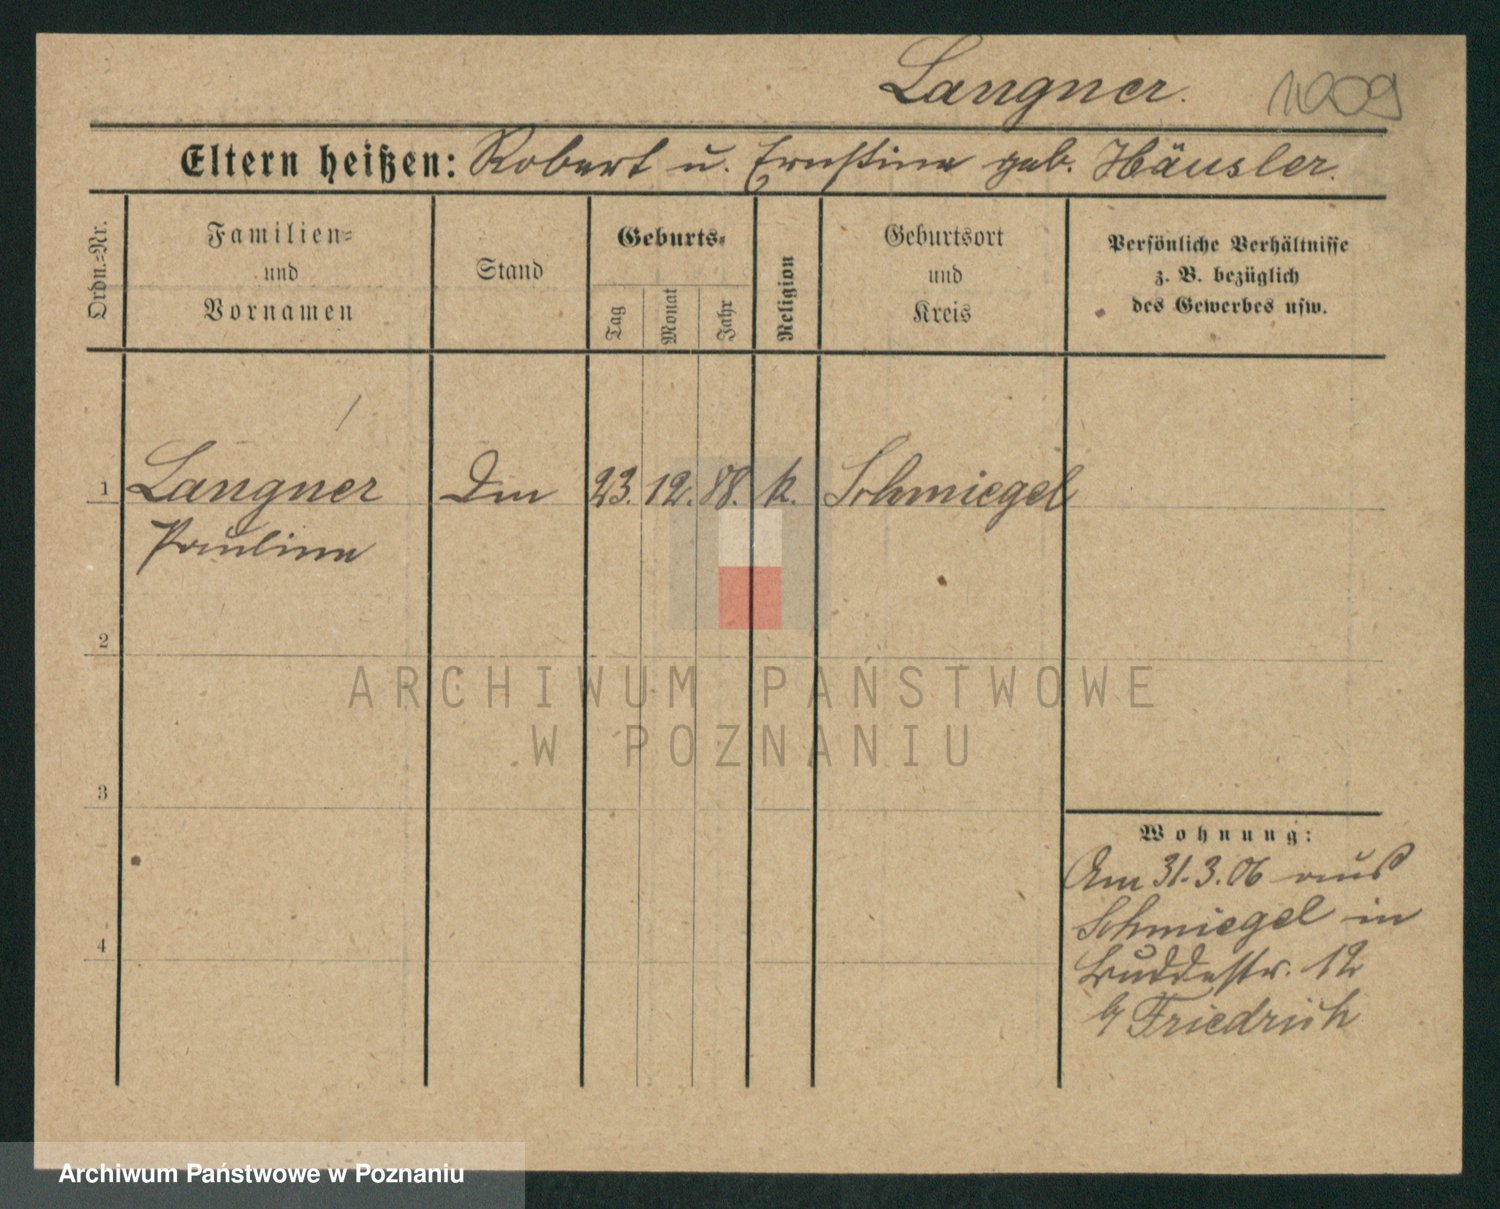 Langner.
Eltern heißen: Robert u. Ernstine geb. Häusler.
Ordn.=Nr.
Familien=
und
Vornamen
Stand
Geburts=
Tag
Monat
Jahr
Religion
Geburtsort
und
Kreis
Persönliche Verhältnisse
z. B. bezüglich
des Gewerbes usw.
1 Langner Dm 23. 12. 88. k. Schmiegel
Pauline
2
ARCHIWUM PAŃSTWOWE
W POZNANIU
3
Wohnung:
Am 31.3.06 aus
Schmiegel in
Buddestr. 12
b/ Friedrich
4
Archiwum Państwowe w Poznaniu